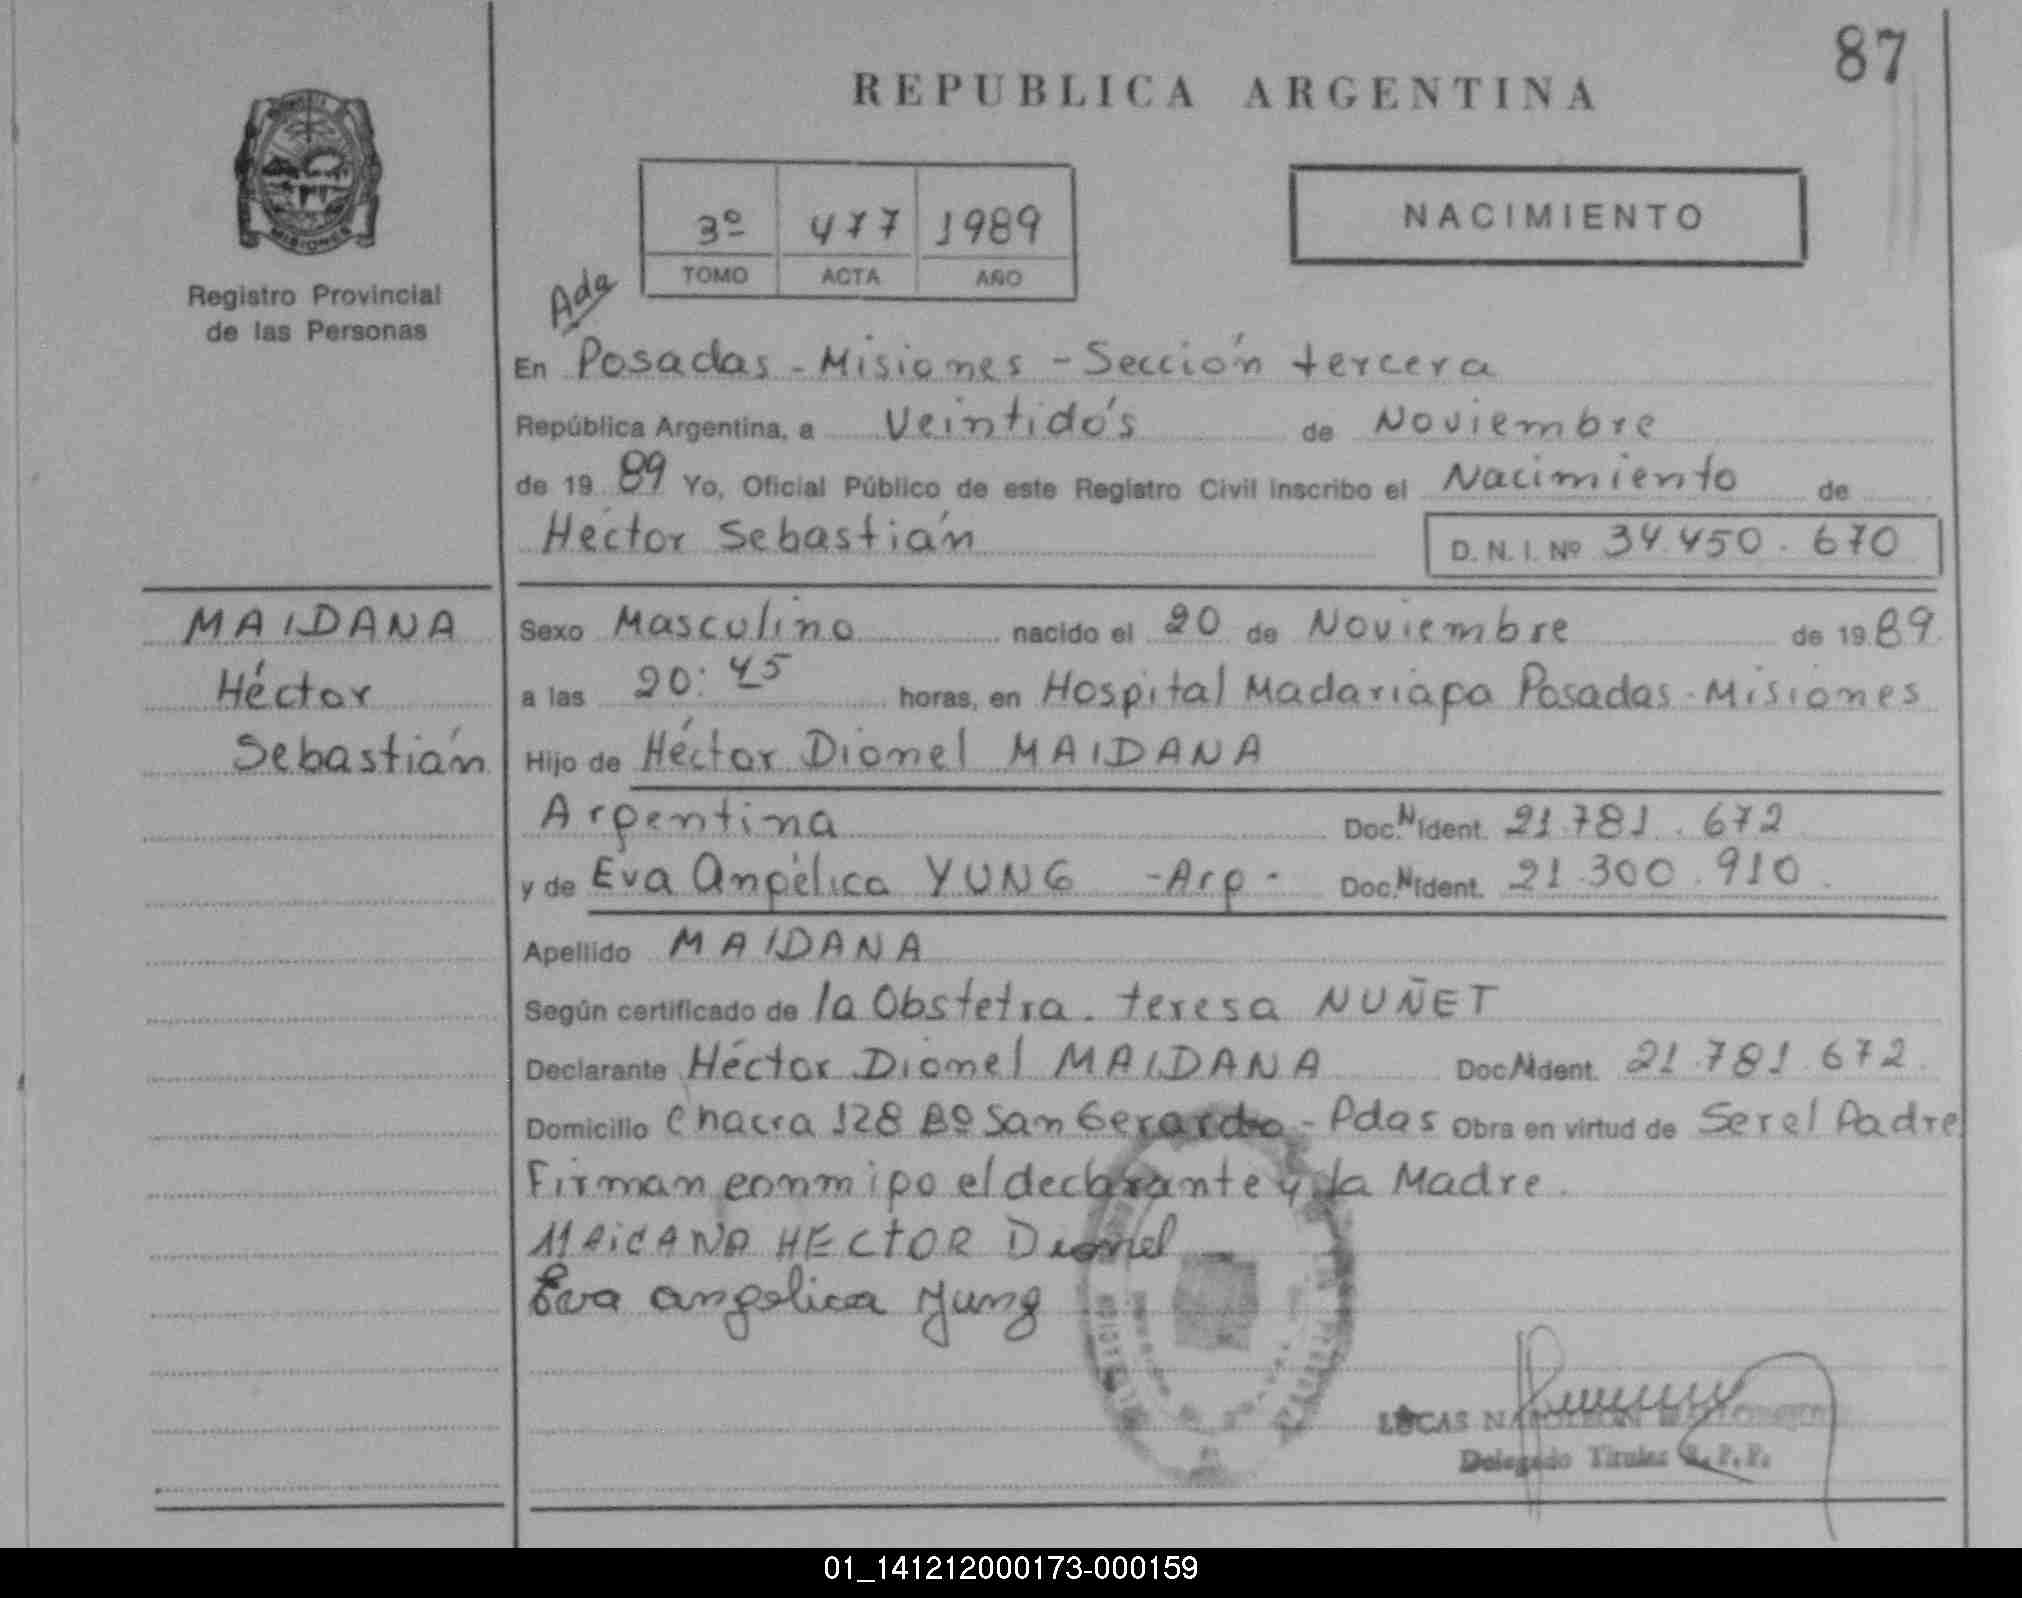 87
REPUBLICA ARGENTINA
MISIONES
Registro Provincial
de las Personas
3º 477 1989
TOMO ACTA AÑO
NACIMIENTO
Ada
En Posadas - Misiones - Sección tercera
República Argentina, a Veintidós de Noviembre
de 19 89 Yo, Oficial Público de este Registro Civil inscribo el Nacimiento de
Héctor Sebastián D. N. I. Nº 34.450.670
MAIDANA
Héctor
Sebastián
Sexo Masculino nacido el 20 de Noviembre de 19 89
a las 20:45 horas, en Hospital Madariaga Posadas - Misiones
Hijo de Héctor Dionel MAIDANA
Argentina Doc. N Ident. 21.781.672
y de Eva Angélica YUNG - Arg - Doc. N Ident. 21.300.910.
Apellido MAIDANA
Según certificado de la Obstetra. teresa NUÑET
Declarante Héctor Dionel MAIDANA Doc. N Ident. 21.781.672.
Domicilio Chacra 128 Bº San Gerardo - Pdas Obra en virtud de Ser el Padre
Firman conmigo el declarante y la Madre.
MAIDANA HECTOR Dionel
Eva angelica Yung
LUCAS NAPOLEON
Delegado Titular R. P. P.
01_141212000173-000159